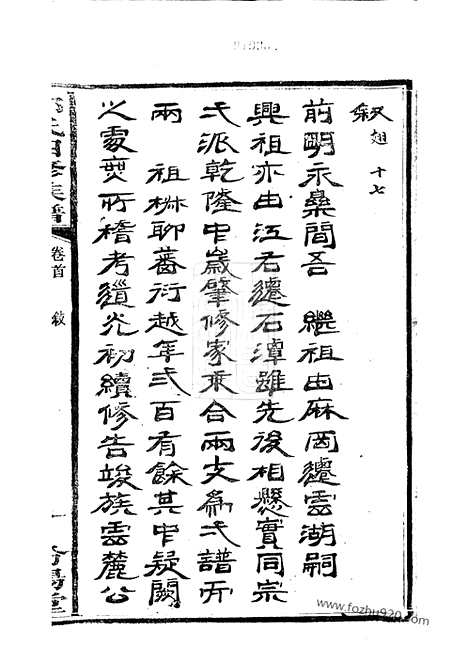 敘
翅 十七
前明永樂間吾 繼祖由麻岡遷雲湖嗣
興祖亦由江右遷石潭雖先後相懸實同宗
弌派乾隆中歲肇修家乘合兩支為弌譜而
兩 祖楙聊蕃衍越年弍百有餘其中疑闕
之處莫所稽考道光初續修告竣族雲麓公
四修族譜
卷首 敘
一
堂
www.fozhu920.com